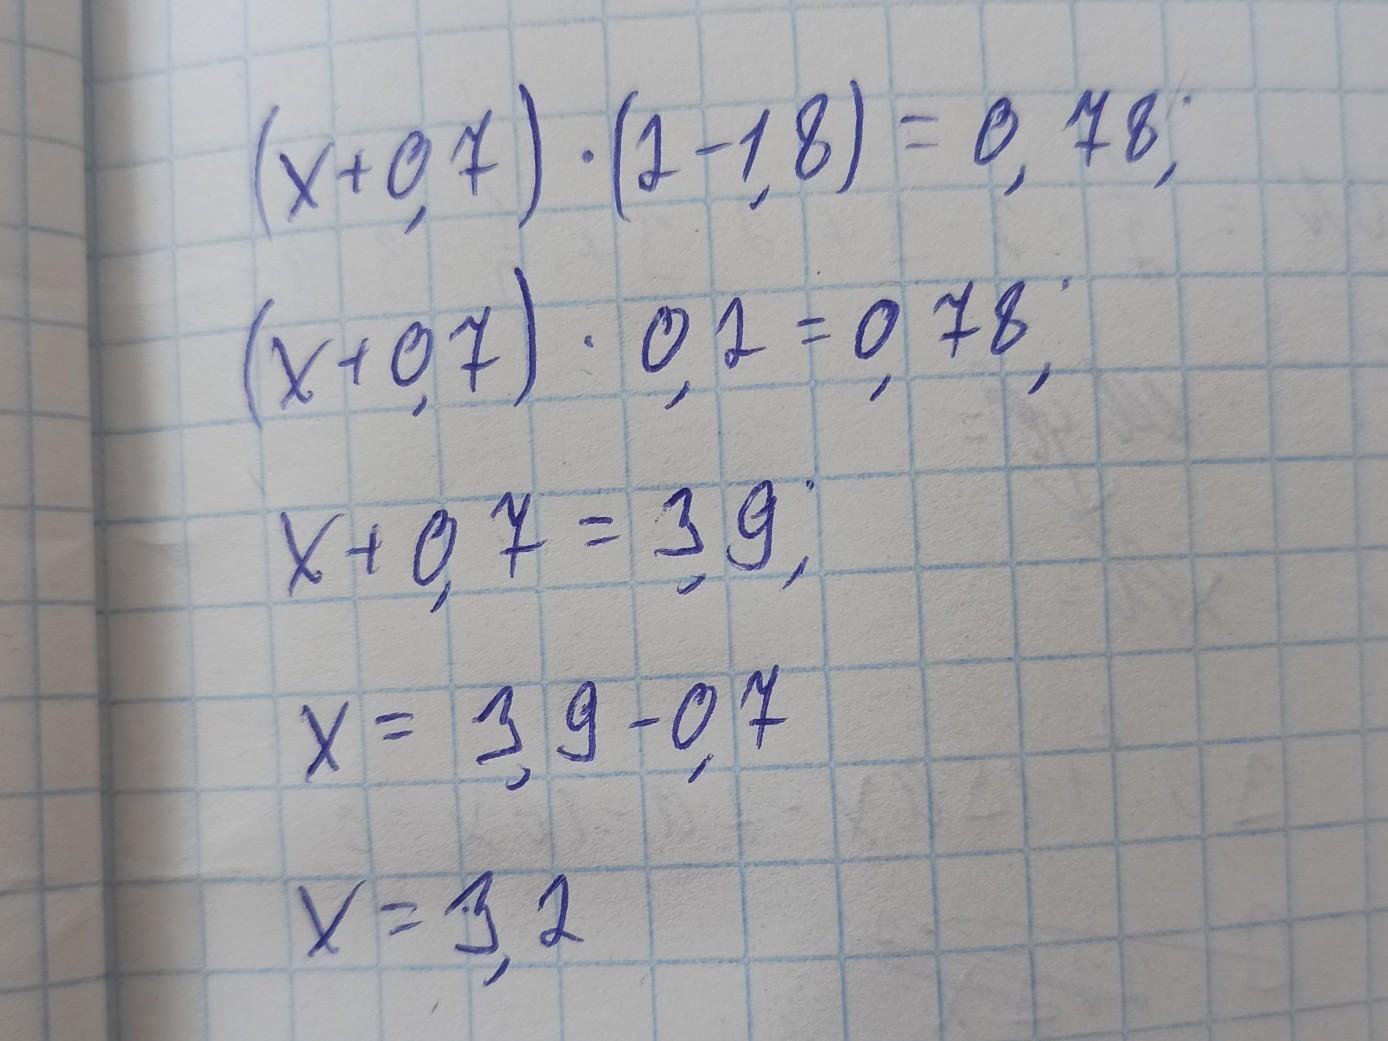 (x+0,7)·(2-1,8)=0,78;
(x+0,7)·0,2=0,78;
x+0,7=3,9;
x=3,9-0,7
x=3,2